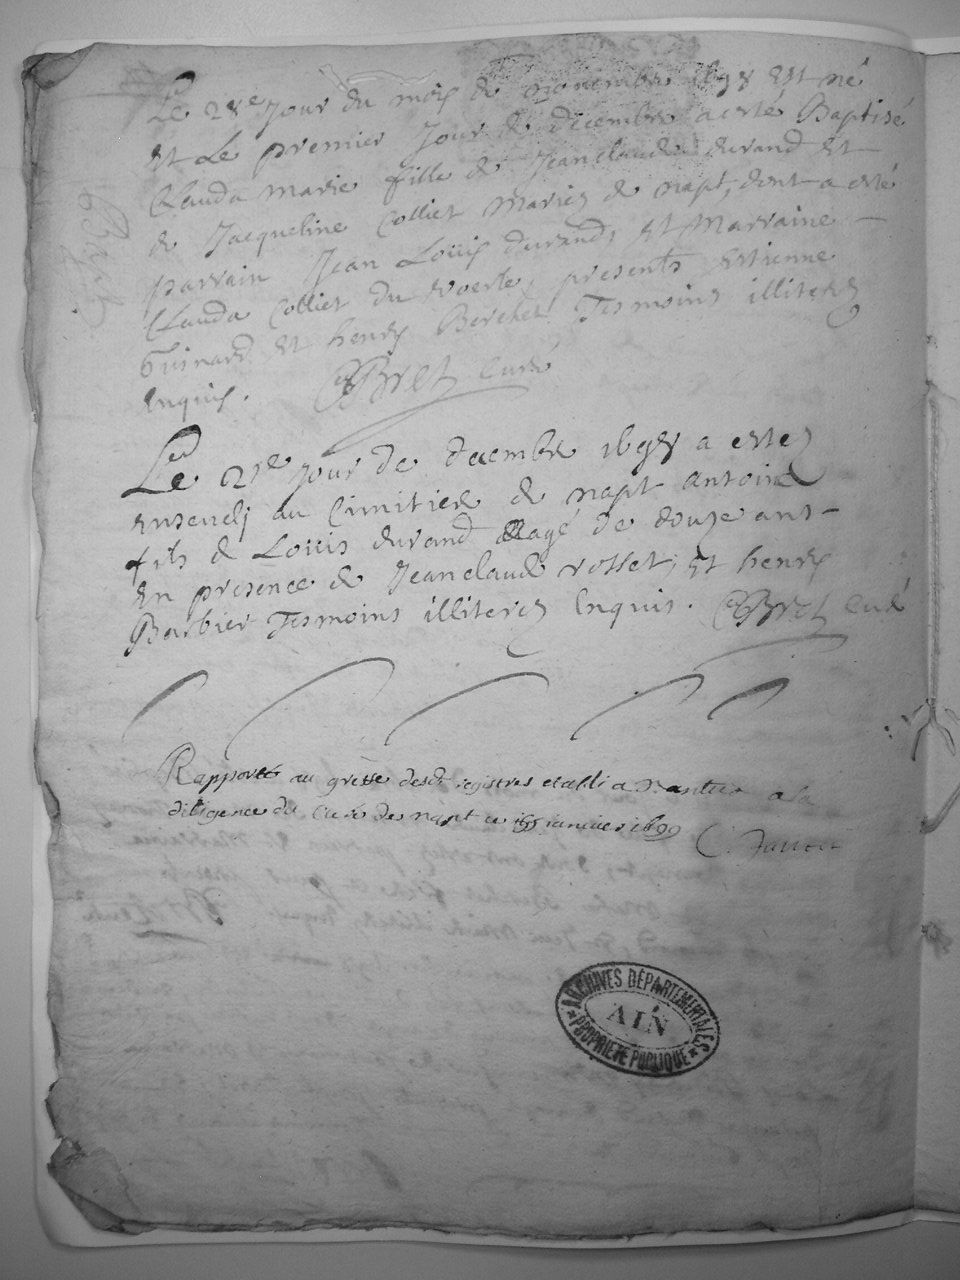 Le 28e Jour du mois de novembre 1698 Est né
Et Le premier Jour de decembre a esté Baptisé
Clauda marie fille de Jeanclaude durand Et
de Jacqueline Collier Mariez de napt, dont a esté
parrain Jean Louis durand, Et Marraine
Clauda Collier du presents Estienne
Guinard Et henry Berchet Tesmoins illiterez
Enquis. Bret curé
Le 21e Jour de decembre 1698 a estez
Enseveli au Cimitiere de napt antoine
fils de Louis durand agé de douze ans
En presence de Jeanclaude rosset, Et henry
Barbier Tesmoins illiterez Enquis. Bret Curé
Rapporté au greffe desdt registres establi a Nantua a la
diligence du Curé de napt ce janvier 1699
ARCHIVES DÉPARTEMENTALES
AIN
PROPRIÉTÉ PUBLIQUE